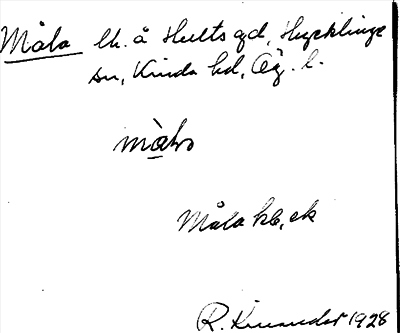 Måla lh. å Hults gd, Hycklinge
sn, Kinda hd, Ög. l.
Måla kb, ek
R. Kinander 1928